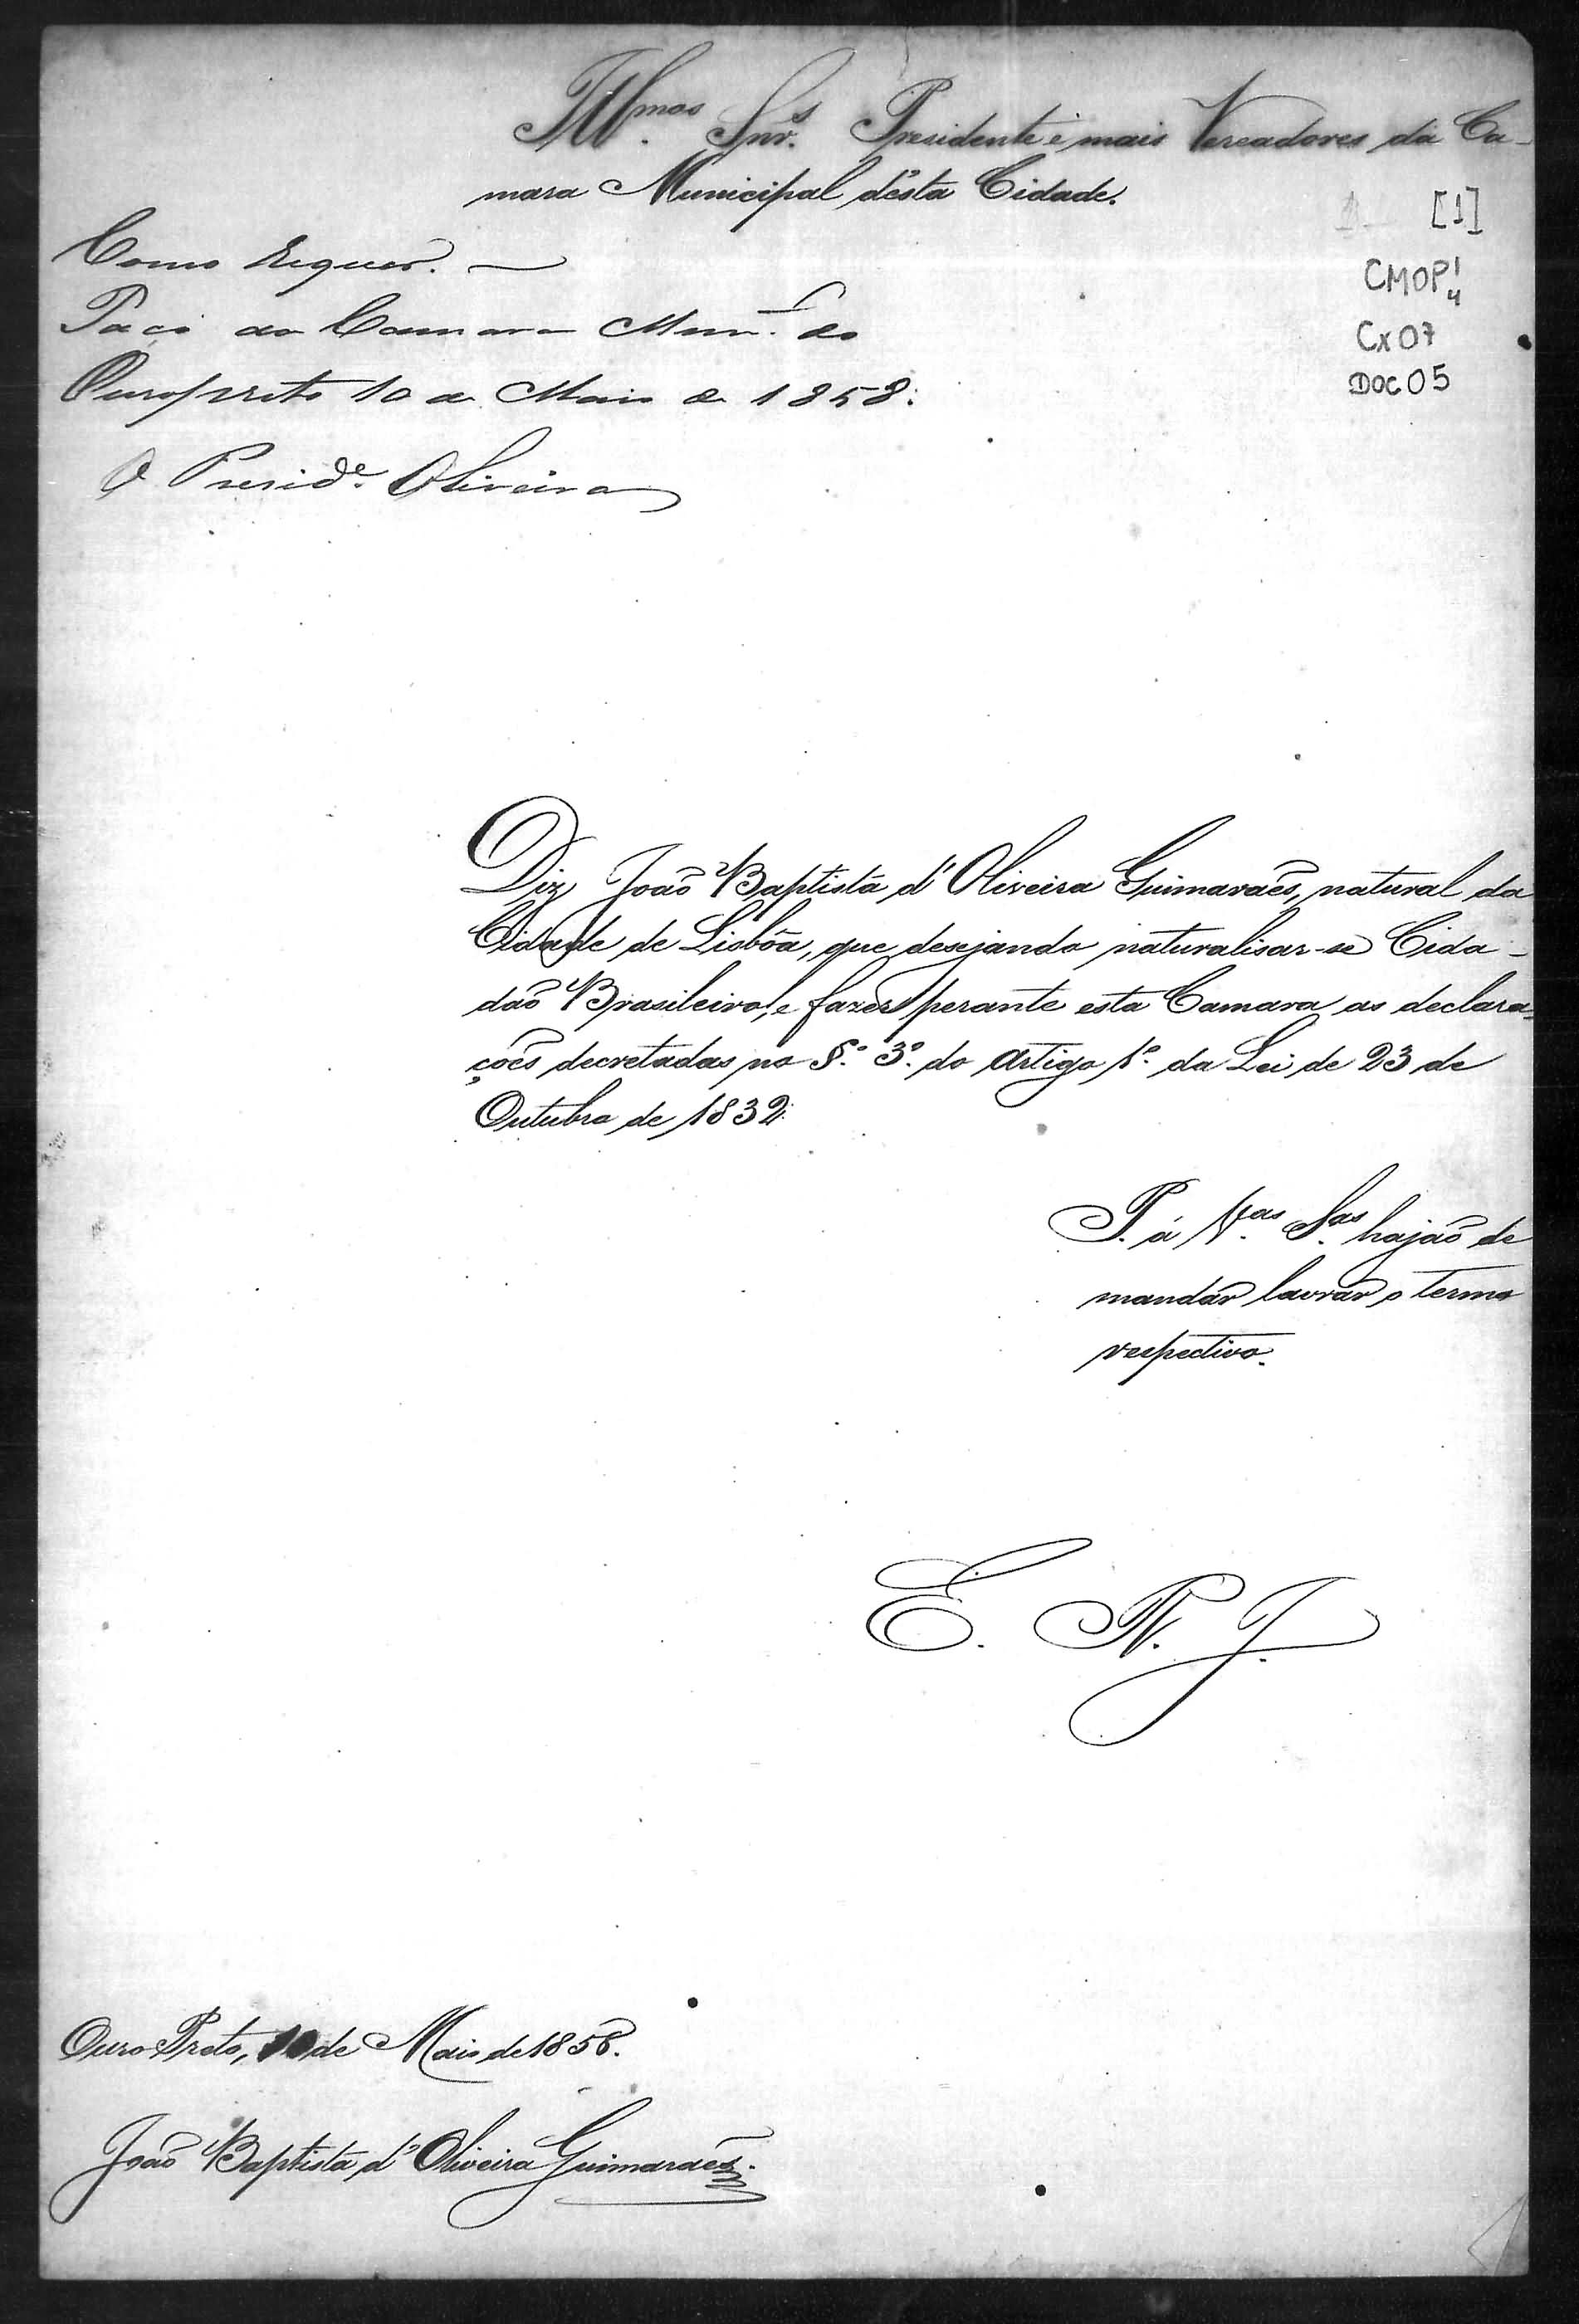 Illmos. Snrs. Presidente e mais Vereadores da Ca-
mara Municipal d'esta Cidade.
[1]
CMOP 1/4
Cx 07
DOC 05
Como requer. —
Paço da Camara Mun.l do
Ouropreto 10 de Maio de 1858.
O Presid.e Oliveira
Diz João Baptista d'Oliveira Guimaraẽs, natural da
Cidade de Lisbôa, que desejando naturalisar-se Cida-
dão Brasileiro, e fazer perante esta Camara as declara-
çoẽs decretadas no §.º 3.º do Artigo 1.º da Lei de 23 de
Outubro de 1832.
P. á V.as S.as hajão de
mandar lavrar o termo
respectivo.
E. R. J.
Ouro Preto, 10 de Maio de 1858.
João Baptista d'Oliveira Guimaraẽs.